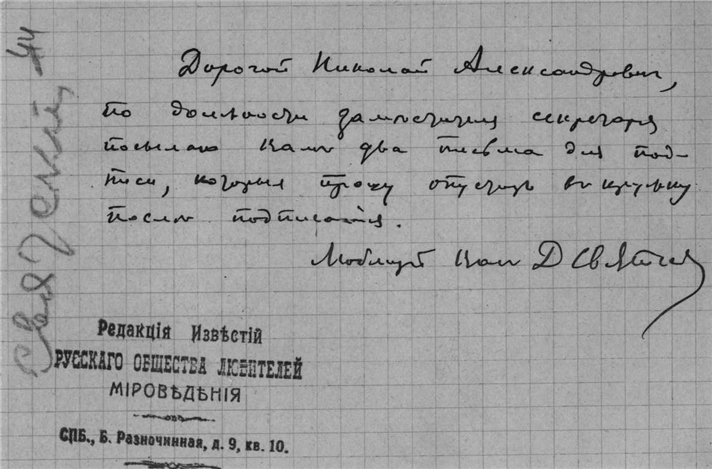 Дорогой Николай Александрович,
по должности заместителя секретаря
посылаю вам два письма для под-
писи, которыя прошу опустить в кружку
подписания.
Любящий вас Д Святск
Святский,
Редакція Извѣстій
РУССКАГО ОБЩЕСТВА ЛЮБИТЕЛЕЙ
МІРОВѢДѢНІЯ
СПБ., Б. Разночинная, д. 9, кв. 10.